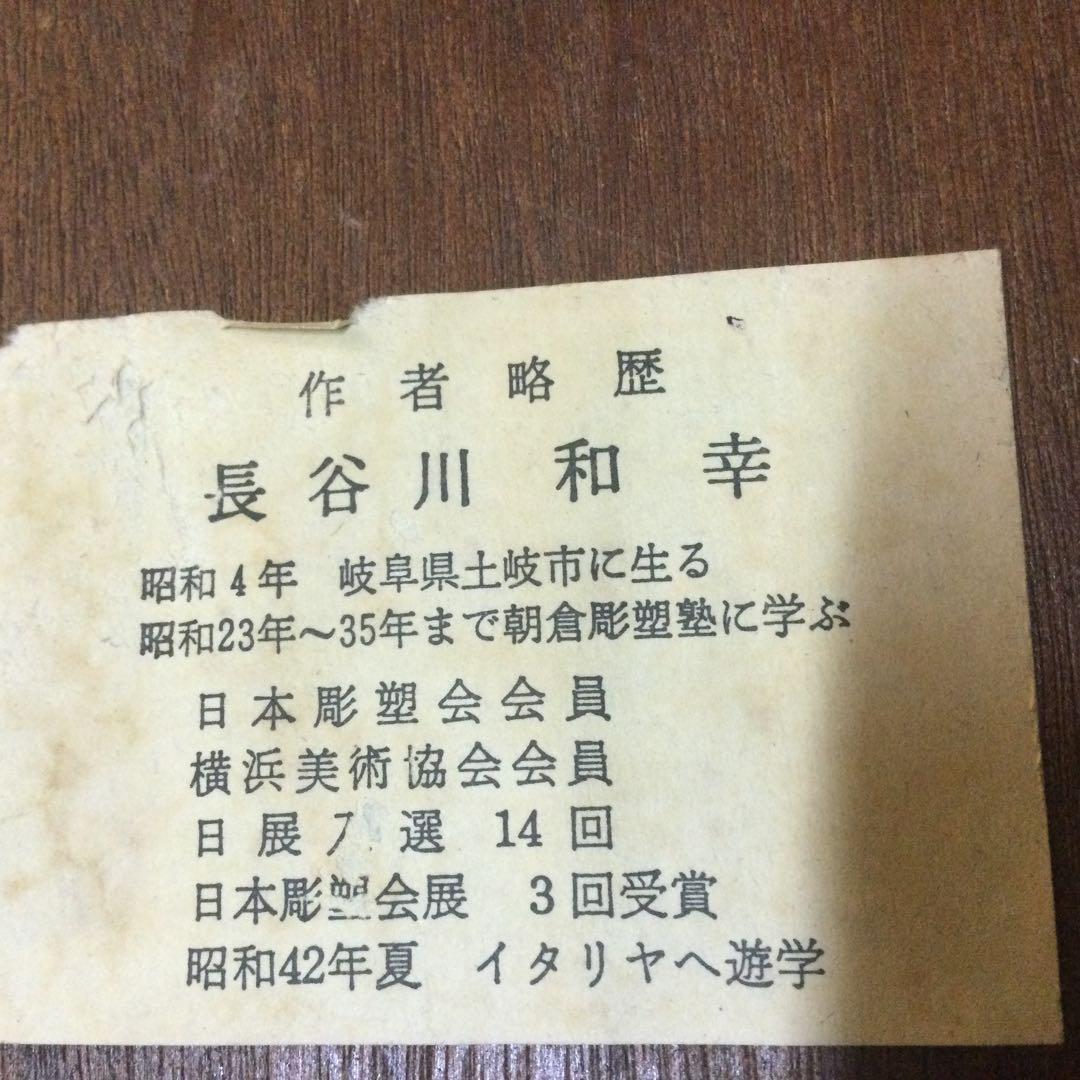 作者略歴
長谷川 和幸
昭和4年 岐阜県土岐市に生る
昭和23年～35年まで朝倉彫塑塾に学ぶ
日本彫塑会会員
横浜美術協会会員
日展入選 14回
日本彫塑会展 3回受賞
昭和42年夏 イタリヤへ遊学